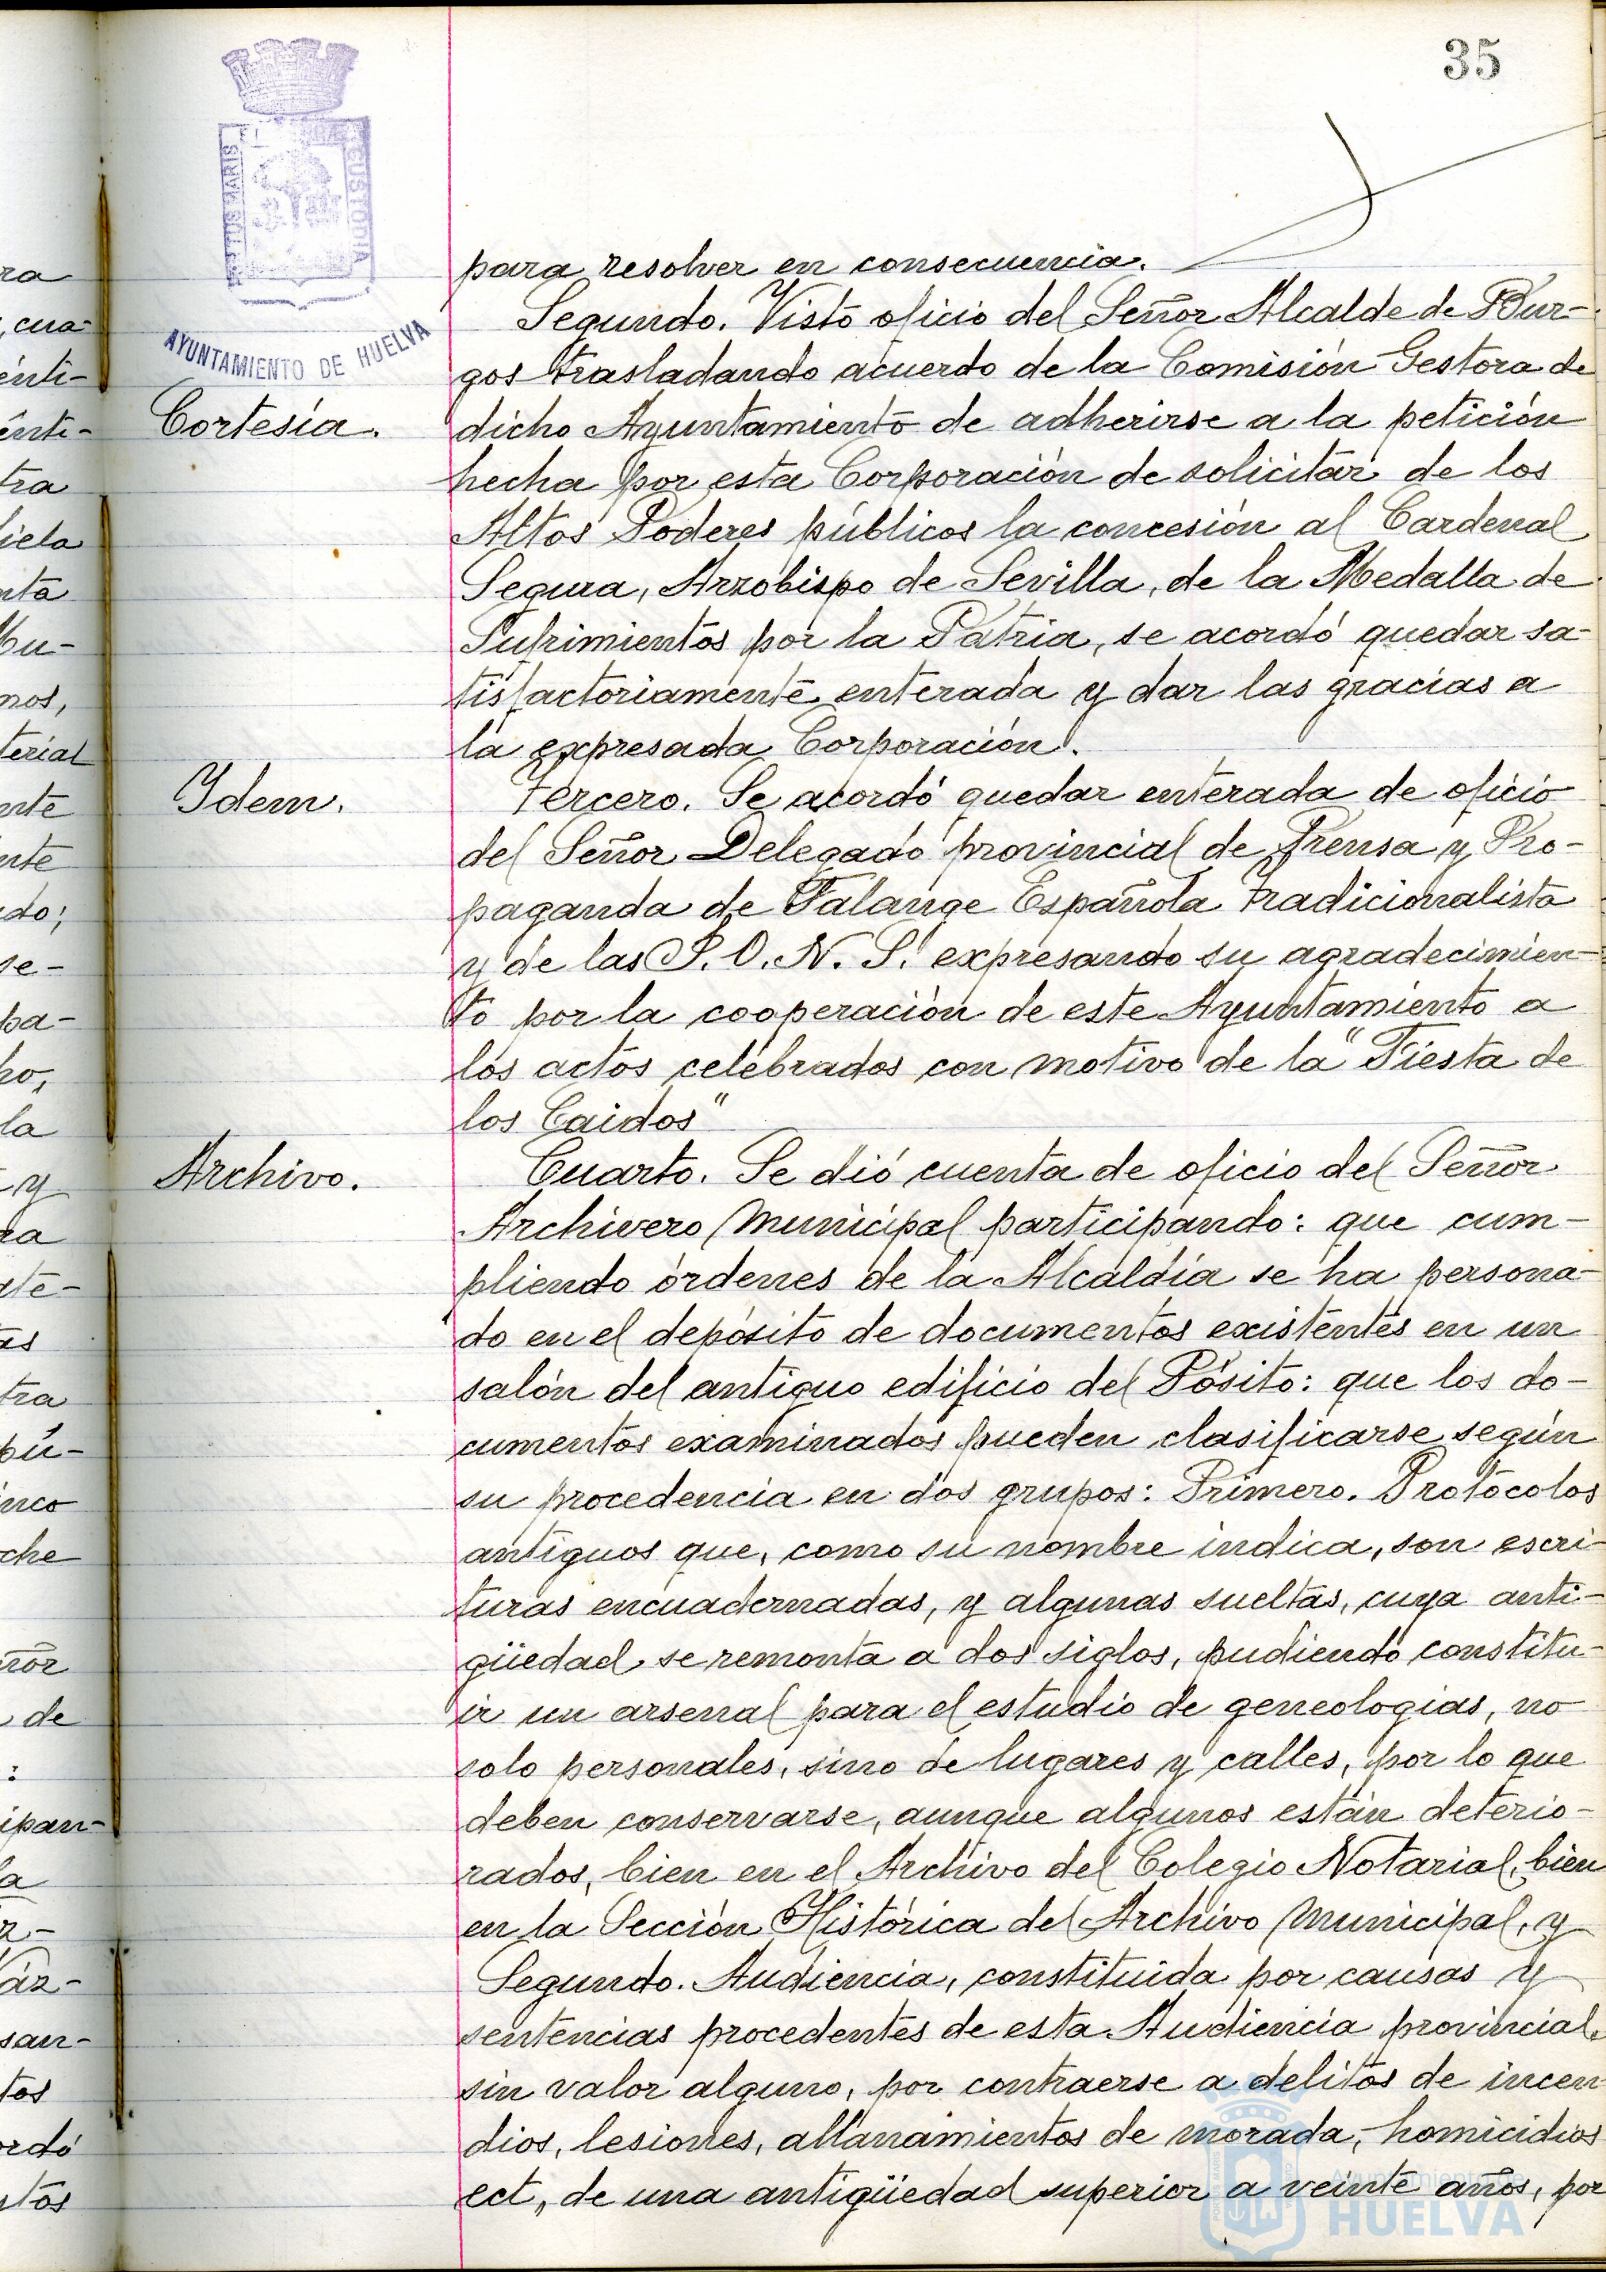 35
PORTUS MARIS ET TERRAE CUSTODIA
AYUNTAMIENTO DE HUELVA
para resolver en consecuencia.
Segundo. Visto oficio del Señor Alcalde de Bur-
gos trasladando acuerdo de la Comisión Gestora de
Cortesía.
dicho Ayuntamiento de adherirse a la petición
hecha por esta Corporación de solicitar de los
Altos Poderes públicos la concesión al Cardenal
Segura, Arzobispo de Sevilla, de la Medalla de
Sufrimientos por la Patria, se acordó quedar sa-
tisfactoriamente enterada y dar las gracias a
la expresada Corporación.
Idem.
Tercero. Se acordó quedar enterada de oficio
del Señor Delegado provincial de Prensa y Pro-
paganda de Falange Española Tradicionalista
y de las J. O. N. S. expresando su agradecimien-
to por la cooperación de este Ayuntamiento a
los actos celebrados con motivo de la "Fiesta de
los Caidos"
Archivo.
Cuarto. Se dió cuenta de oficio del Señor
Archivero Municipal participando: que cum-
pliendo órdenes de la Alcaldía se ha persona-
do en el depósito de documentos existentes en un
salón del antiguo edificio del Pósito: que los do-
cumentos examinados pueden clasificarse según
su procedencia en dos grupos: Primero. Protocolos
antiguos que, como su nombre indica, son escri-
turas encuadernadas, y algunas sueltas, cuya anti-
güedad se remonta a dos siglos, pudiendo constitu-
ir un arsenal para el estudio de geneologias, no
solo personales, sino de lugares y calles, por lo que
deben conservarse, aunque algunos están deterio-
rados, bien en el Archivo del Colegio Notarial, bien
en la Sección Histórica del Archivo Municipal, y
Segundo. Audiencia, constituida por causas y
sentencias procedentes de esta Audiencia provincial,
sin valor alguno, por contraerse a delitos de incen
dios, lesiones, allanamientos de morada, homicidios
ect, de una antigüedad superior a veinte años, por
Ayuntamiento de
HUELVA